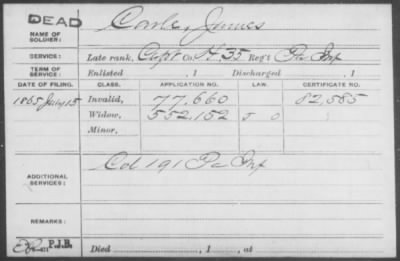 DEAD
NAME OF SOLDIER: Carle, James
SERVICE: Late rank, Capt Co. H, 35 Reg't Pa Inf
TERM OF SERVICE: Enlisted , 1 Discharged , 1
DATE OF FILING. CLASS. APPLICATION NO. LAW. CERTIFICATE NO.
1865 July 15 Invalid, 77,660 82,585
Widow, 552,152
Minor,
ADDITIONAL SERVICES: Col 191 Pa Inf
REMARKS:
P.J.B. Died , 1 , at